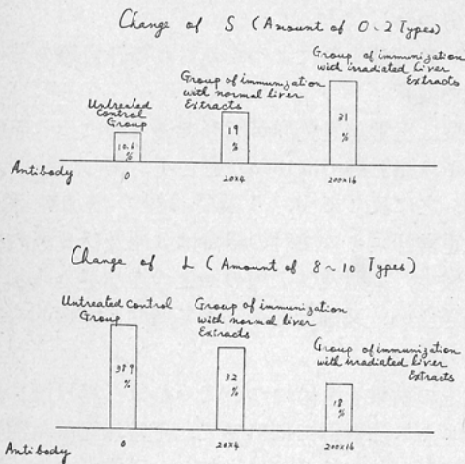 Change of S (Amount of 0~2 Types)
Untreated Control Group
10.6 %
Group of immunization with normal liver Extracts
19 %
Group of immunization with irradiated liver Extracts
31 %
Antibody
0
20×4
200×16
Change of L (Amount of 8~10 Types)
Untreated Control Group
38.9 %
Group of immunization with normal liver Extracts
32 %
Group of immunization with irradiated liver Extracts
18 %
Antibody
0
20×4
200×16